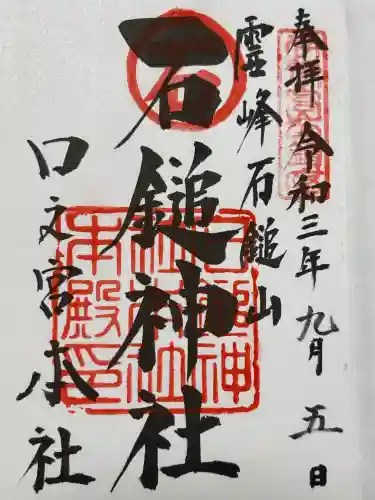 奉拝 令和三年九月五日
霊峰石鎚山
石鎚神社
口之宮本社
石鎚神社本殿印